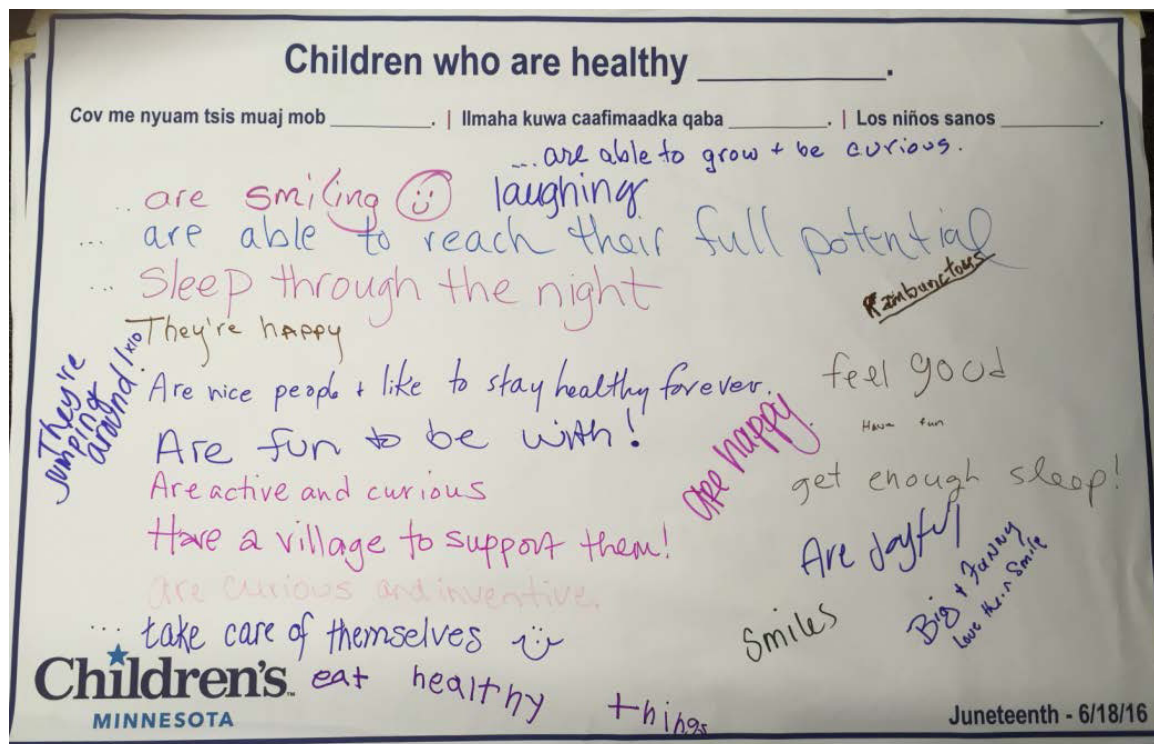 Children who are healthy __________.
Cov me nyuam tsis muaj mob __________. | Ilmaha kuwa caafimaadka qaba __________. | Los niños sanos __________.
... are able to grow + be curious.
.. are smiling laughing
... are able to reach their full potential
... Sleep through the night
Rambunctous
They're happy
They're
Jumping
around
feel good
Are nice people + like to stay healthy forever.
Have fun
Are fun to be with!
are happy.
get enough sleep!
Are active and curious
Have a village to support them!
Are Joyful
Big + Funny
Love their Smile
are curious and inventive.
Smiles
... take care of themselves
eat healthy things
Children's™
MINNESOTA
Juneteenth - 6/18/16